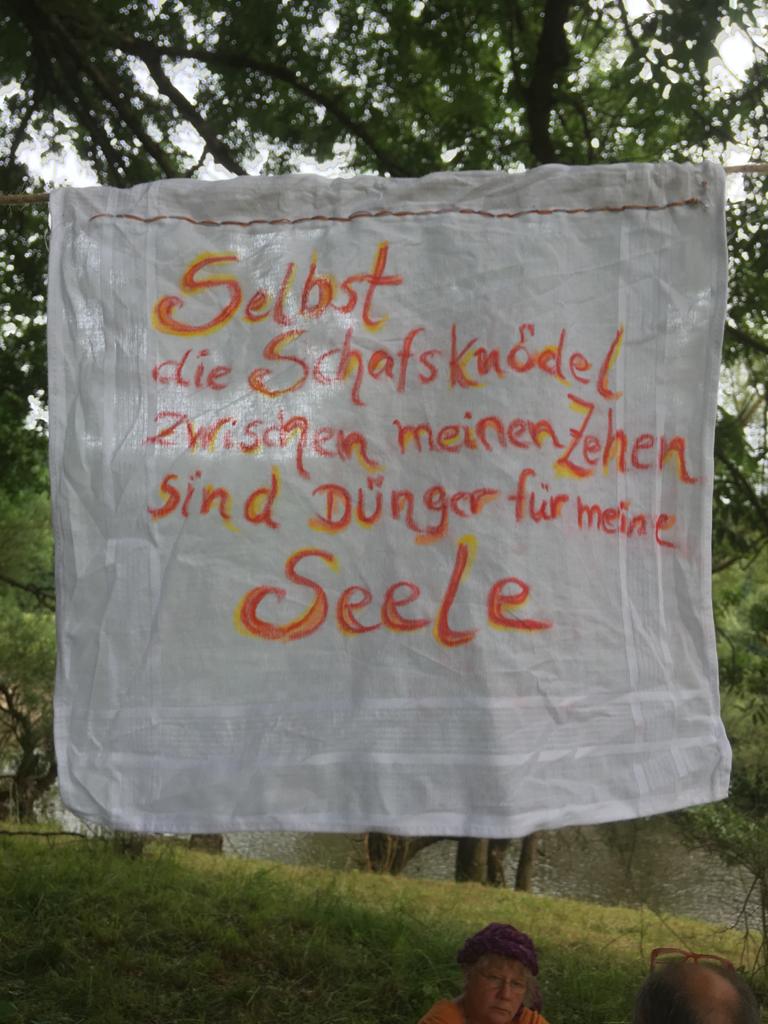 Selbst
die Schafsknödel
zwischen meinen Zehen
sind Dünger für meine
Seele